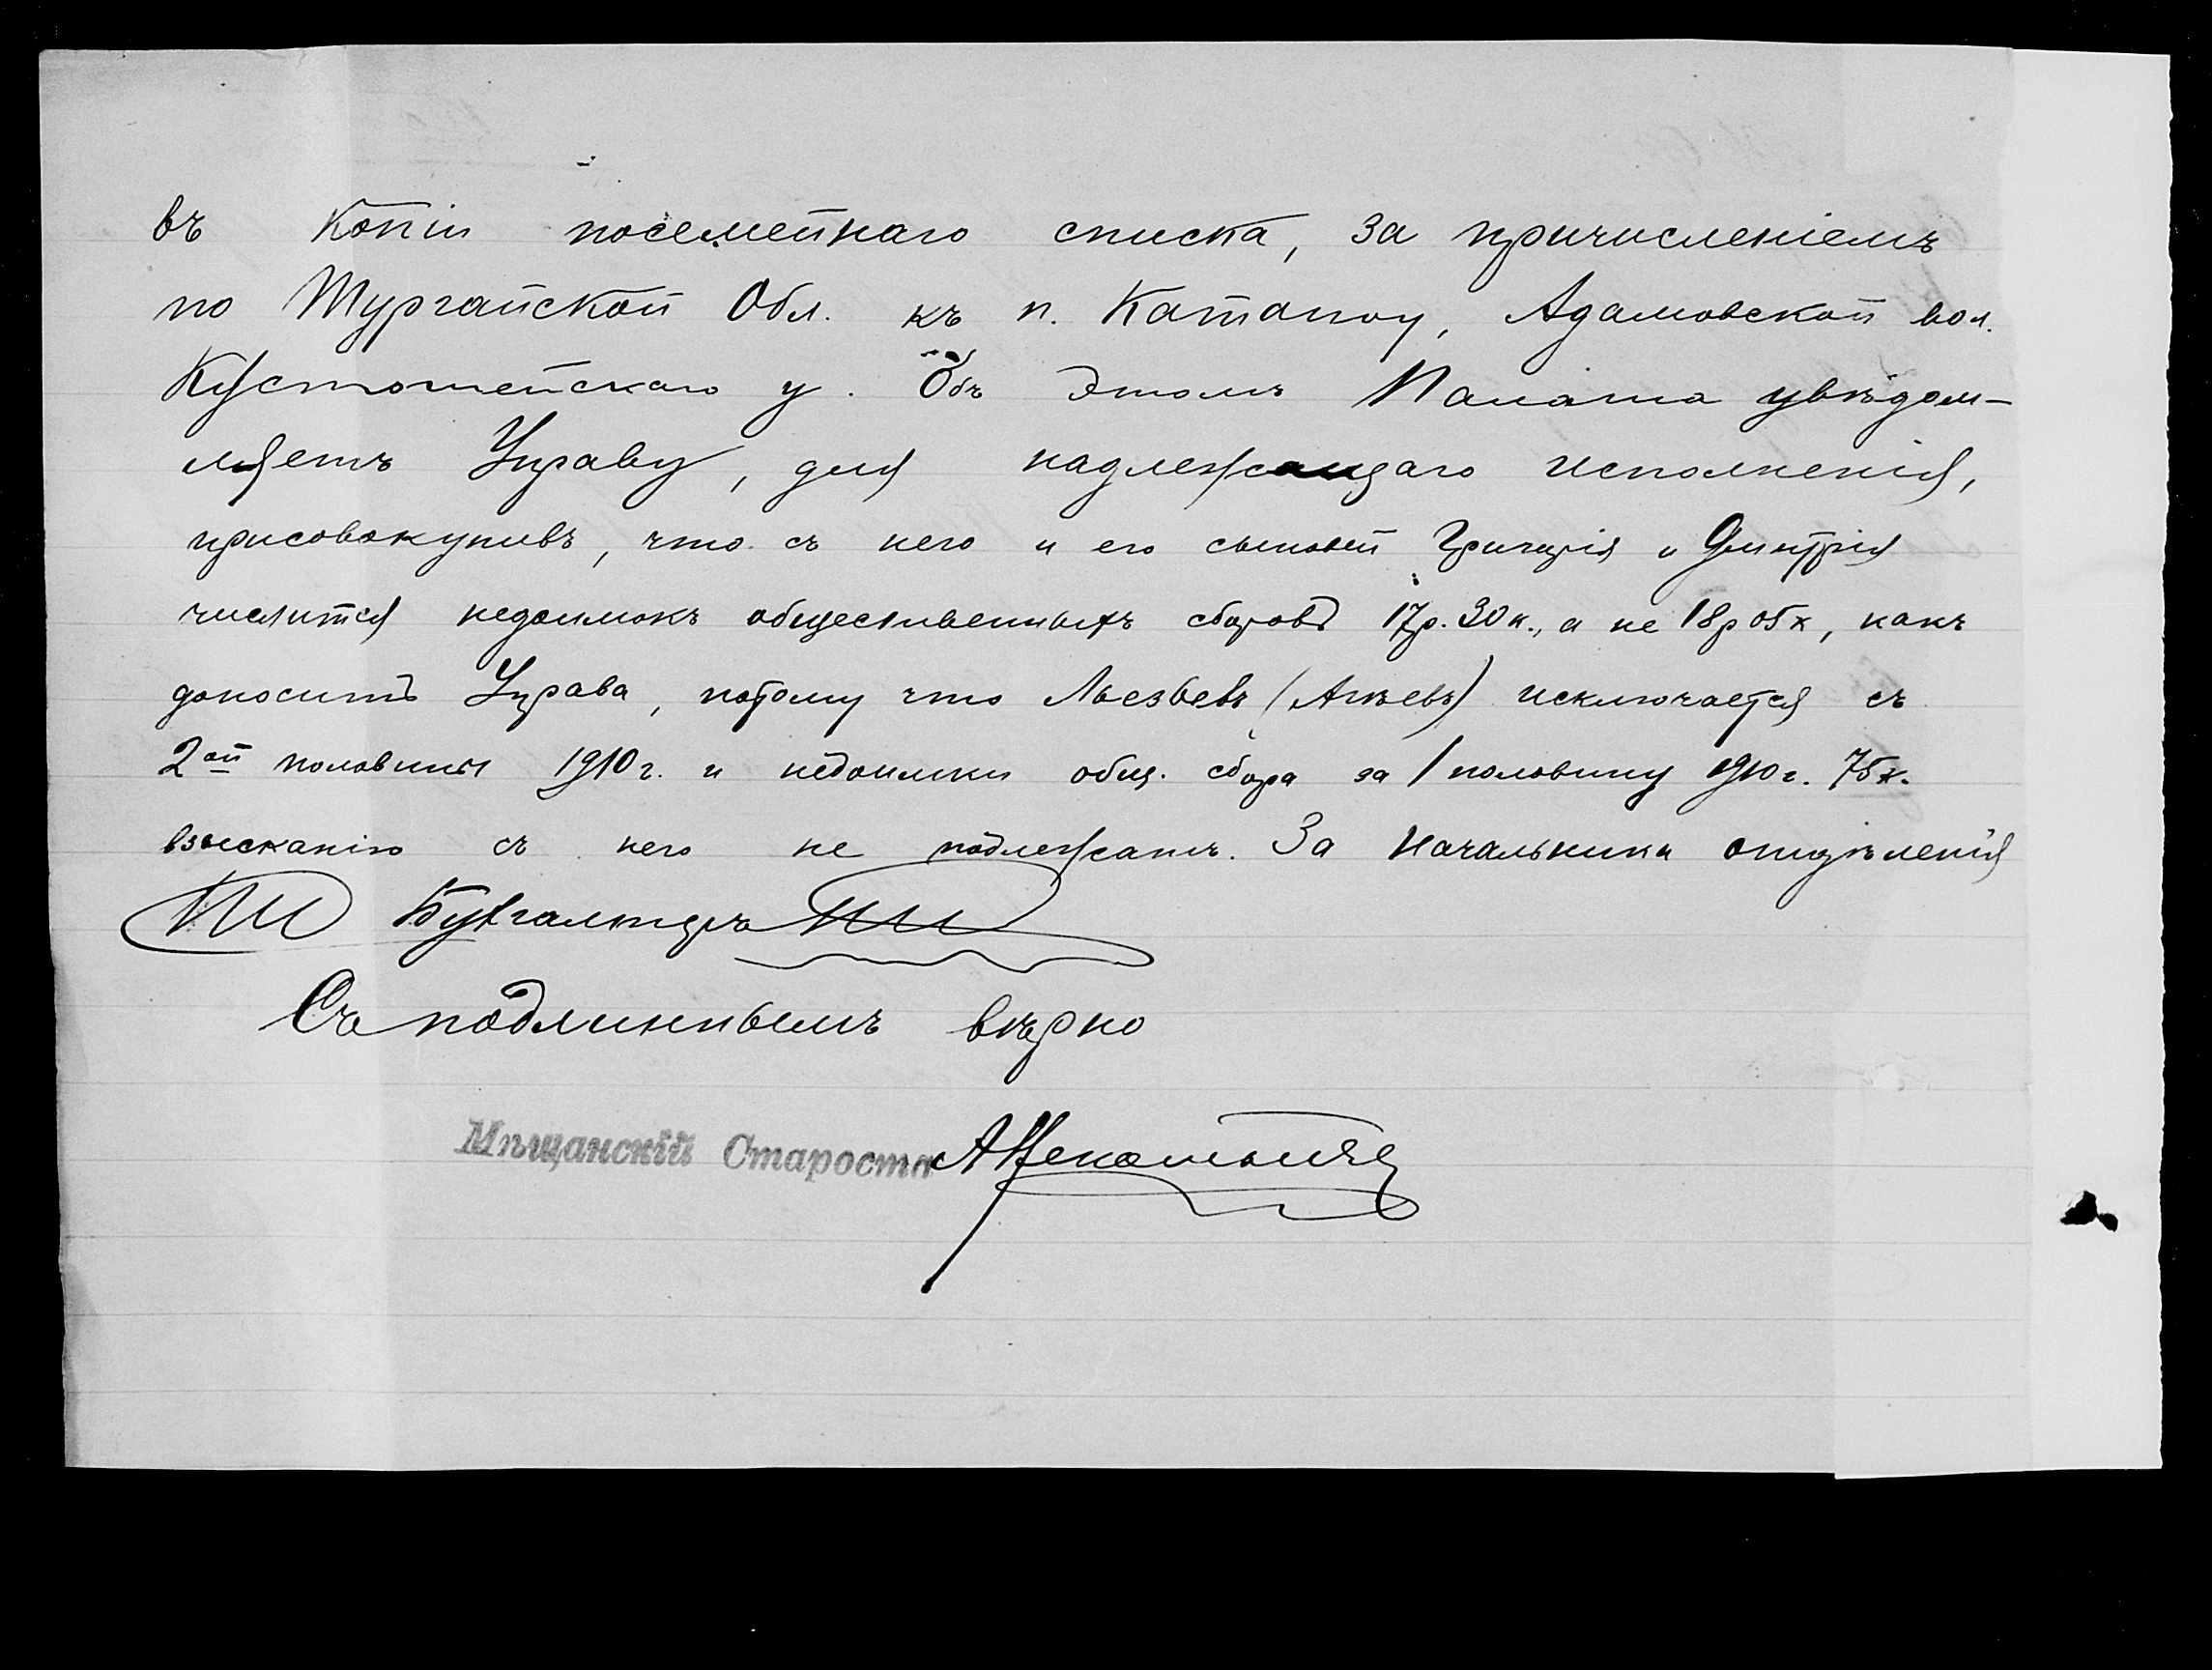 въ копіи посемейнаго списка, за причисленіемъ
по Тургайской Обл. къ п. Катаноу, Адамовской вол.
Кустонайскаго у. Объ этомъ Палата увѣдом-
ляетъ Управу, для надлежащаго исполненія,
присовокупивъ, что съ него и его сыновей Григорія и Дмитрія
числится недоимокъ общественныхъ сборовъ 17р. 30к., а не 18р 05к, какъ
доноситъ Управа, потому что исключается съ
2ой половины 1910г. и недоимки общ. сбора за 1 половину 1910г. 75к.
взысканію съ него не подлежатъ. За Начальника отдѣленія
Бухгалтеръ
Съ подлиннымъ вѣрно
Мѣщанскій Староста